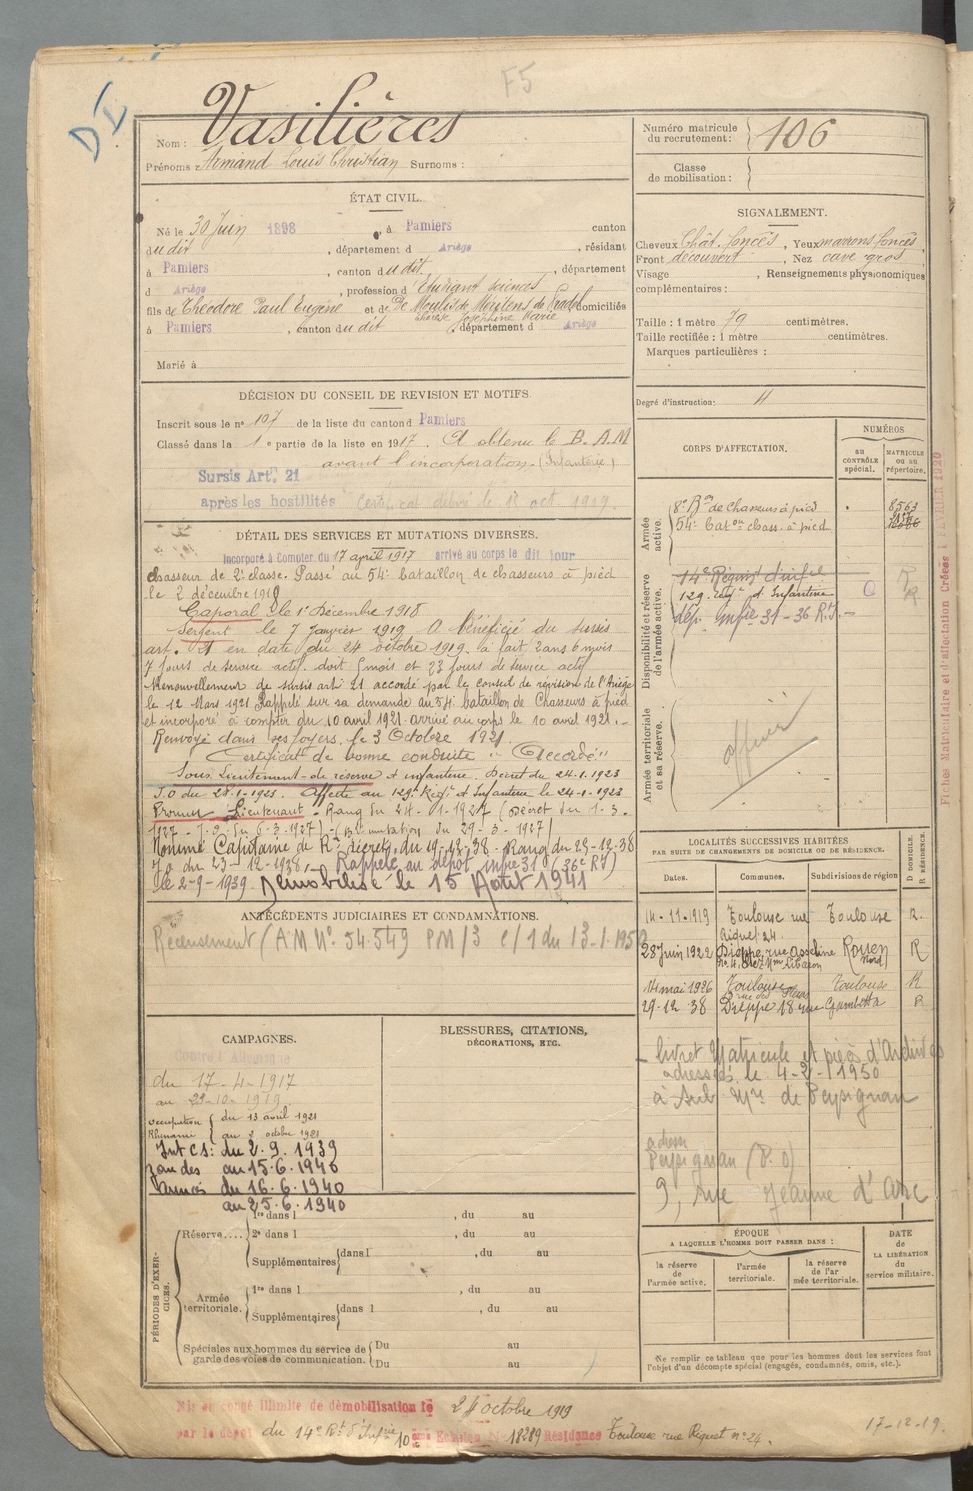 D I
F5
Nom : Vasilières
Prénoms : Armand Louis Christian Surnoms :
Numéro matricule du recrutement : 106
Classe de mobilisation :
ÉTAT CIVIL.
Né le 30 Juin 1898 , à Pamiers canton
du dit , département d Ariège , résidant
à Pamiers , canton du dit , département
d Ariège , profession d Etudiant sciences
fils de Théodore Paul Eugène et de De Moulis de Mortens de Pradel domiciliés
Josephine Marie
à Pamiers , canton du dit , département d Ariège
Marié à
SIGNALEMENT.
Cheveux Chât. foncés , Yeux marrons foncés ,
Front découvert , Nez cave gros
Visage , Renseignements physionomiques
complémentaires :
Taille : 1 mètre 79 centimètres.
Taille rectifiée : 1 mètre centimètres.
Marques particulières :
Degré d'instruction : 4
DÉCISION DU CONSEIL DE REVISION ET MOTIFS.
Inscrit sous le n° 107 de la liste du canton d Pamiers
Classé dans la 1e partie de la liste en 1917. A obtenu le B.A.M
avant l'incorporation. (Infanterie)
Sursis Art. 21
après les hostilités Certificat délivré le 1r oct 1919.
CORPS D'AFFECTATION.
NUMÉROS
au CONTRÔLE spécial.
MATRICULE ou au répertoire.
Armée active.
8e Bon de chasseurs à pied 8563
54e baton chass. à pied
Disponibilité et réserve de l'armée active.
14e Régimt d'infie
129 Regt d'Infanterie
dép. Infie 31 - 36 R.I. -
Armée territoriale et sa réserve.
officier
Fiches Matriculaire et d'affectation Créées FÉVRIER 1920
DÉTAIL DES SERVICES ET MUTATIONS DIVERSES.
Incorporé à Compter du 17 april 1917 arrivé au corps le dit jour
chasseur de 2e classe. Passé au 54e bataillon de chasseurs à pied
le 2 décembre 1918
Caporal le 1r Décembre 1918
Sergent le 7 Janvier 1919 A bénéficié du sursis
art. 21 en date du 24 octobre 1919. à fait 2 ans 6 mois
7 jours de service actif. doit 5 mois et 23 jours de service actif
Renouvellement de sursis art 21 accordé par le conseil de révision de l'Ariège
le 12 Mars 1921 Rappelé sur sa demande au 54e bataillon de Chasseurs à pied
et incorporé à compter du 10 avril 1921. arrivé au corps le 10 avril 1921. -
Renvoyé dans ses foyers, le 3 Octobre 1921
Certificat de bonne conduite "Accordé"
Sous-Lieutenant de réserve d'infanterie. Décret du 24.1.1923
J.O du 28.1.1923. Affecté au 129e Regt d'Infanterie le 24.1.1923
Promu Lieutenant - Rang du 24.01.1927 (Décret du 1-3-
1927 - J.O. du 6-3-1927) - mutation du 29-3-1927)
Nommé Capitaine de Rve décret du 19-12-38. Rang du 25-12-38
J.O du 23-12-1938, - Rappelé au dépôt infie 31 (36e RI)
le 2-9-1939. Démobilisé le 15 Août 1941
ANTÉCÉDENTS JUDICIAIRES ET CONDAMNATIONS.
Recensement (A.M. N° 54.549 PM/3 C/1 du 13-1.1952
LOCALITÉS SUCCESSIVES HABITÉES
PAR SUITE DE CHANGEMENTS DE DOMICILE OU DE RÉSIDENCE.
Dates. Communes. Subdivisions de région D DOMICILE. R RÉSIDENCE
14-11-1919 Toulouse rue Riquet 24. Toulouse R.
28 Juin 1922 Dieppe, rue Asseline Rouen (Nord) R
14 mai 1926 Toulouse rue des Toulouse R
29-12 38 Dieppe 18 rue Gambetta R
livret Matricule et pièces d'Archives
adressés le 4-2-1950
à Sub. Mre de Perpignan
adresse
Perpignan (P.O)
9, rue Jeanne d'Arc
CAMPAGNES.
Contre l'Allemagne
du 17-4-1917
au 23-10-1919.
occupation Rhénanie du 13 avril 1921
au 2 octobre 1921
Int CS : du 2.9.1939
Z. des au 15.6.1940
Armées du 16.6.1940
au 25.6.1940
BLESSURES, CITATIONS,
DÉCORATIONS, ETC.
PÉRIODES D'EXERCICES.
Réserve....
1re dans l , du au
2e dans l , du au
Supplémentaires dans l , du au
Armée territoriale.
1re dans l , du au
Supplémentaires dans l , du au
Spéciales aux hommes du service de garde des voies de communication.
Du au
Du au
ÉPOQUE
A LAQUELLE L'HOMME DOIT PASSER DANS :
la réserve de l'armée active.
l'armée territoriale.
la réserve de l'armée territoriale.
DATE de LA LIBÉRATION du service militaire.
Ne remplir ce tableau que pour les hommes dont les services font
l'objet d'un décompte spécial (engagés, condamnés, omis, etc.).
Mis en congé illimité de démobilisation le 24 octobre 1919
par le dépôt du 14e Rt d'Infie 10 ème Echelon N° 18289 Résidence Toulouse rue Riquet n° 24.
17-12-19.